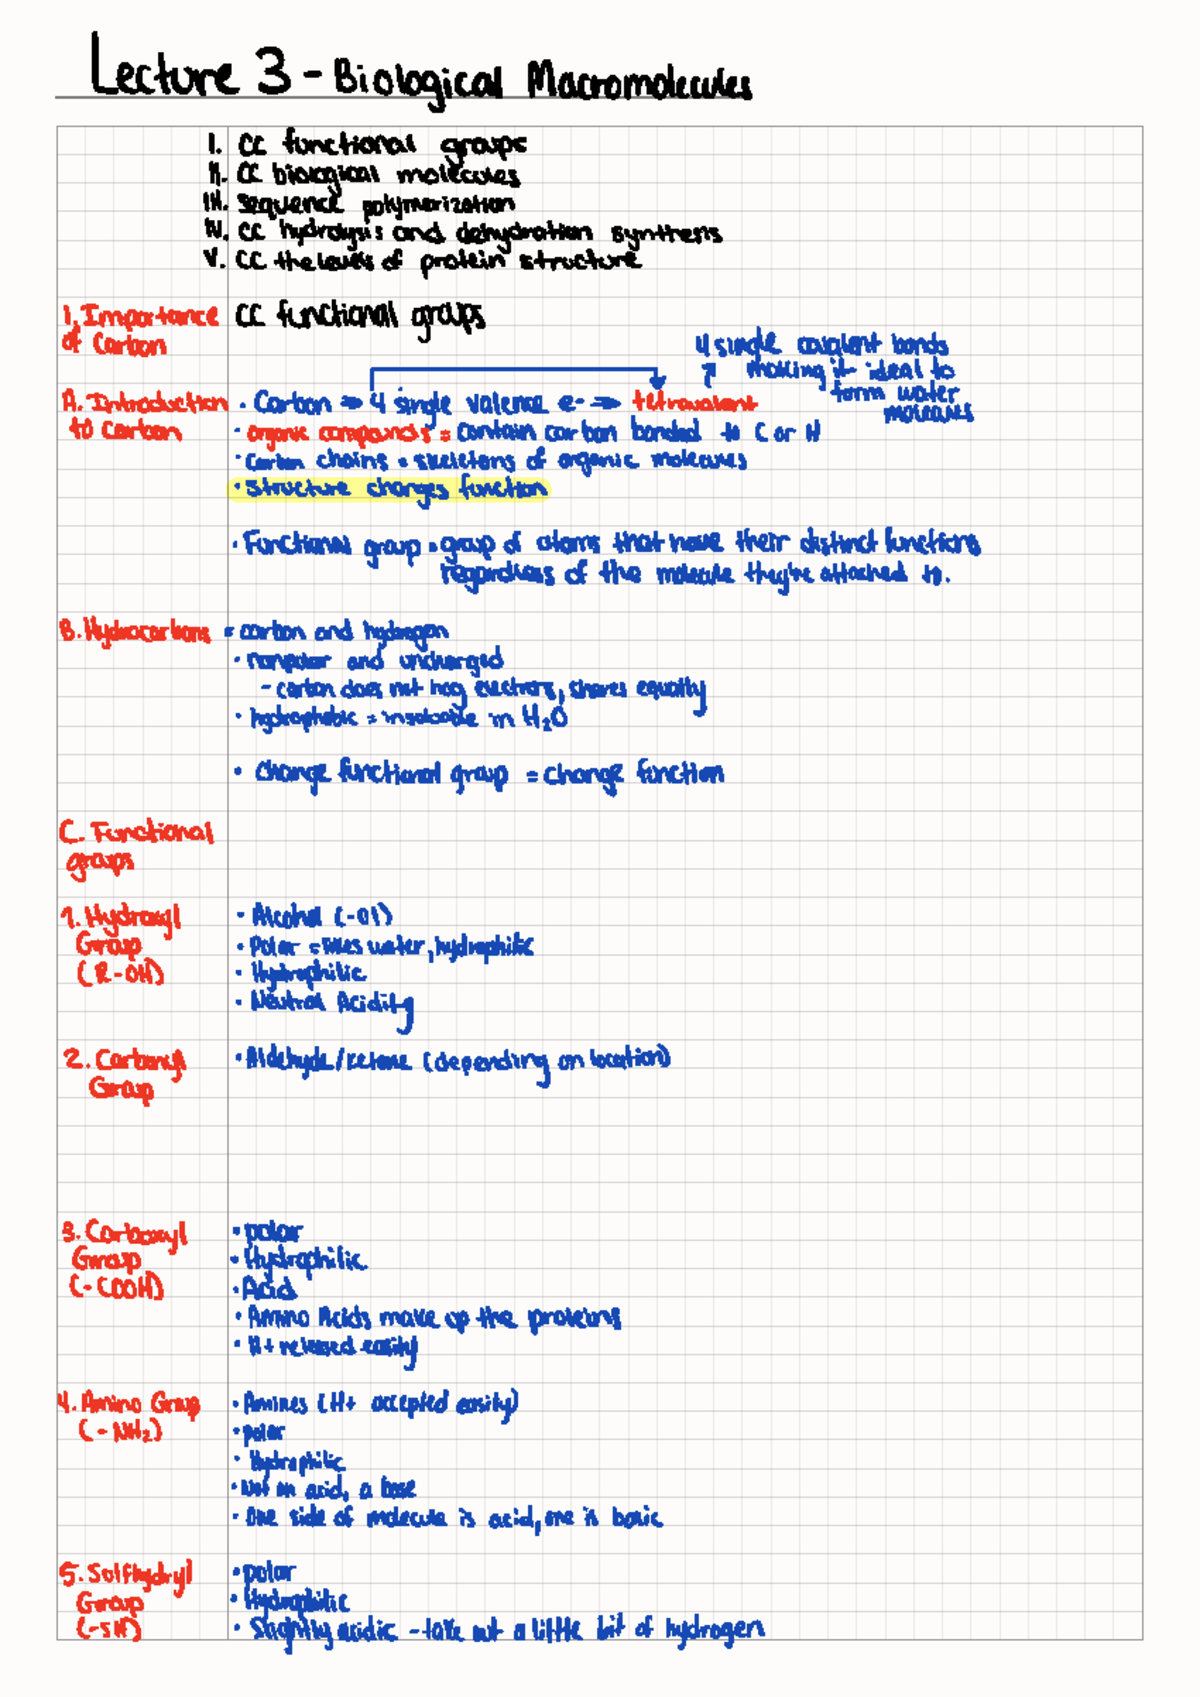 Lecture 3 - Biological Macromolecules
I. CC functional groups
II. CC biological molecules
III. Sequence polymerization
IV. CC hydrolysis and dehydration synthesis
V. CC the levels of protein structure
I. Importance of Carbon
CC functional groups
4 single covalent bonds
making it ideal to
form water
molecules
A. Introduction to Carbon
· Carbon => 4 single valence e- => tetravalent
· organic compounds = contain carbon bonded to C or H
· Carbon chains = skeletons of organic molecules
· Structure changes function
· Functional group = group of atoms that have their distinct functions
regardless of the molecule they're attached to.
B. Hydrocarbons = carbon and hydrogen
· nonpolar and uncharged
- carbon does not hog electrons, shares equally
· hydrophobic = insoluble in H₂O
· Change functional group = change function
C. Functional
groups
1. Hydroxyl
Group
(R-OH)
· Alcohol (-Ol)
· Polar = likes water, hydrophilic
· Hydrophilic
· Neutral Acidity
2. Carbonyl
Group
· Aldehyde/ketone (depending on location)
3. Carboxyl
Group
(-COOH)
· polar
· Hydrophilic
· Acid
· Amino Acids make up the proteins
· H+ released easily
4. Amino Group
(-NH₂)
· Amines (H+ accepted easily)
· polar
· Hydrophilic
· Not an acid, a base
· One side of molecule is acid, one is basic
5. Solfhydryl
Group
(-SH)
· polar
· Hydrophilic
· Slightly acidic - take out a little bit of hydrogen